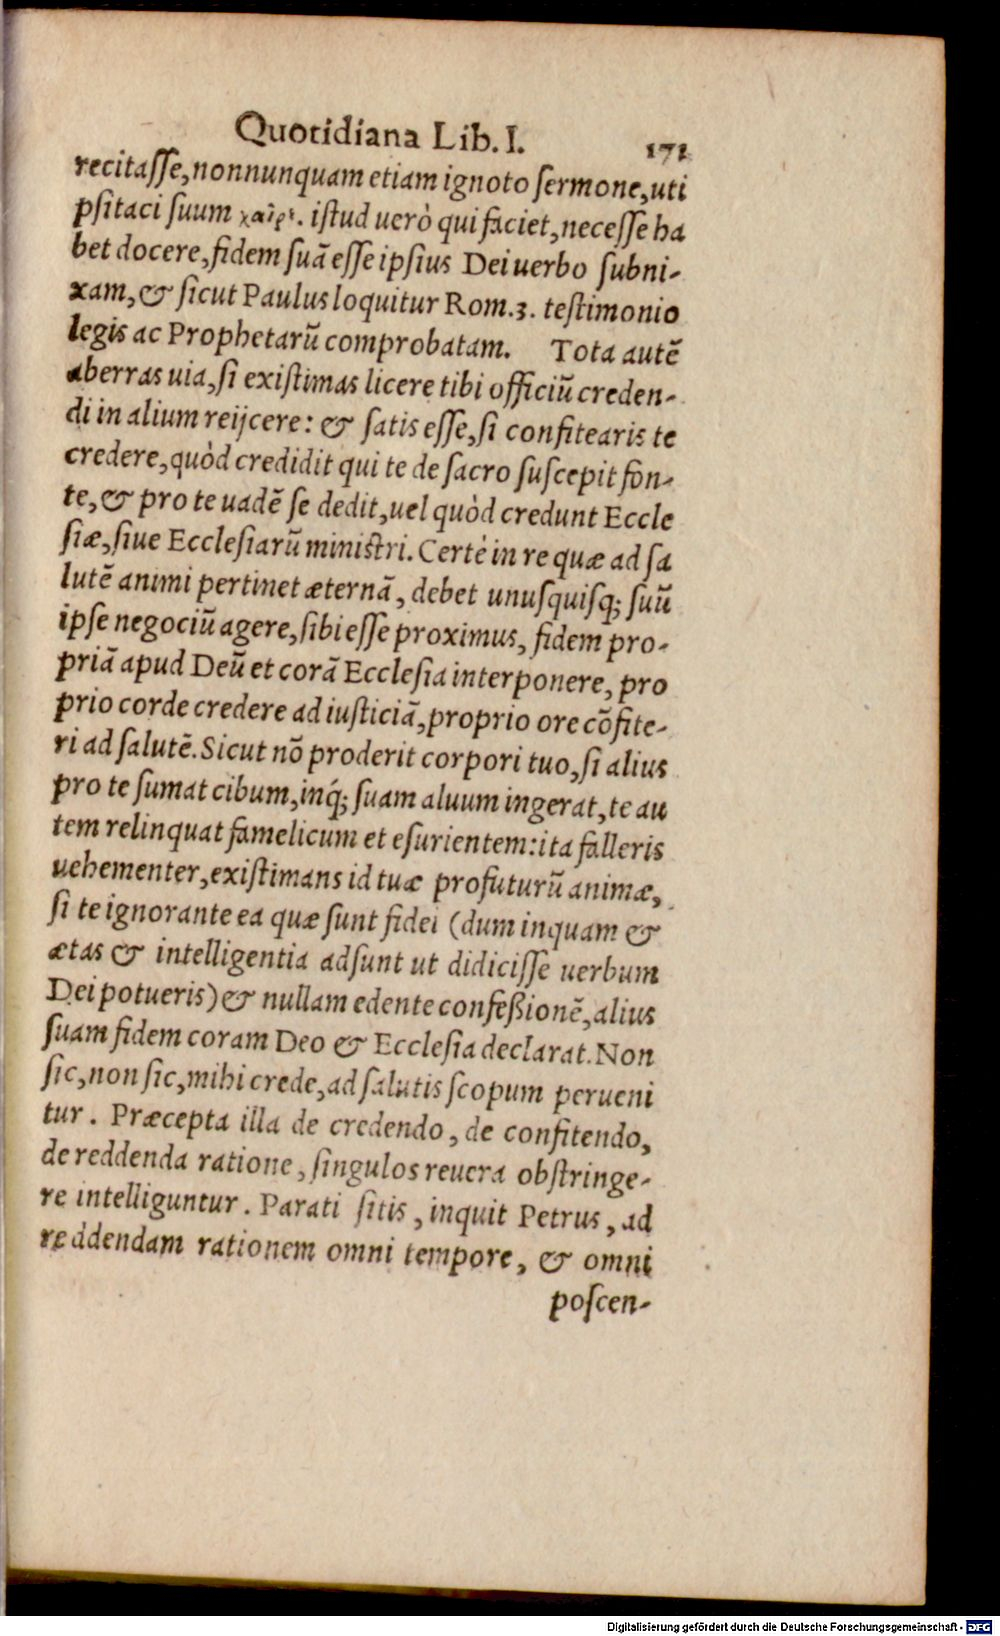 Quotidiana Lib. I. 171
recitaſſe, nonnunquam etiam ignoto ſermone, uti
pſitaci ſuum χαῖρε. iſtud uerò qui faciet, neceſſe ha
bet docere, fidem ſuã eſſe ipſius Dei uerbo ſubni-
xam, & ſicut Paulus loquitur Rom. 3. teſtimonio
legis ac Prophetarũ comprobatam. Tota autẽ
aberras uia, ſi exiſtimas licere tibi officiũ creden-
di in alium reijcere: & ſatis eſſe, ſi confitearis te
credere, quòd credidit qui te de ſacro ſuſcepit fon-
te, & pro te uadẽ ſe dedit, uel quòd credunt Eccle
ſiæ, ſiue Ecclesiarũ miniſtri. Certè in re quæ ad ſa
lutẽ animi pertinet æternã, debet unuſquiſq; ſuũ
ipſe negociũ agere, ſibi eſſe proximus, fidem pro-
priã apud Deũ et corã Eccleſia interponere, pro
prio corde credere ad iuſticiã, proprio ore cõfite-
ri ad ſalutẽ. Sicut nõ proderit corpori tuo, ſi alius
pro te ſumat cibum, inq́; ſuam aluum ingerat, te au
tem relinquat famelicum et eſurientem: ita falleris
uehementer, exiſtimans id tuæ profuturũ animæ,
ſi te ignorante ea quæ ſunt fidei (dum inquam &
ætas & intelligentia adſunt ut didiciſſe uerbum
Dei potueris) & nullam edente confeßionẽ, alius
ſuam fidem coram Deo & Eccleſia declarat. Non
ſic, non ſic, mihi crede, ad ſalutis ſcopum perueni
tur. Præcepta illa de credendo, de confitendo,
de reddenda ratione, ſingulos reuera obſtringe-
re intelliguntur. Parati ſitis, inquit Petrus, ad
reddendam rationem omni tempore, & omni
poſcen-
Digitalisierung gefördert durch die Deutsche Forschungsgemeinschaft - DFG